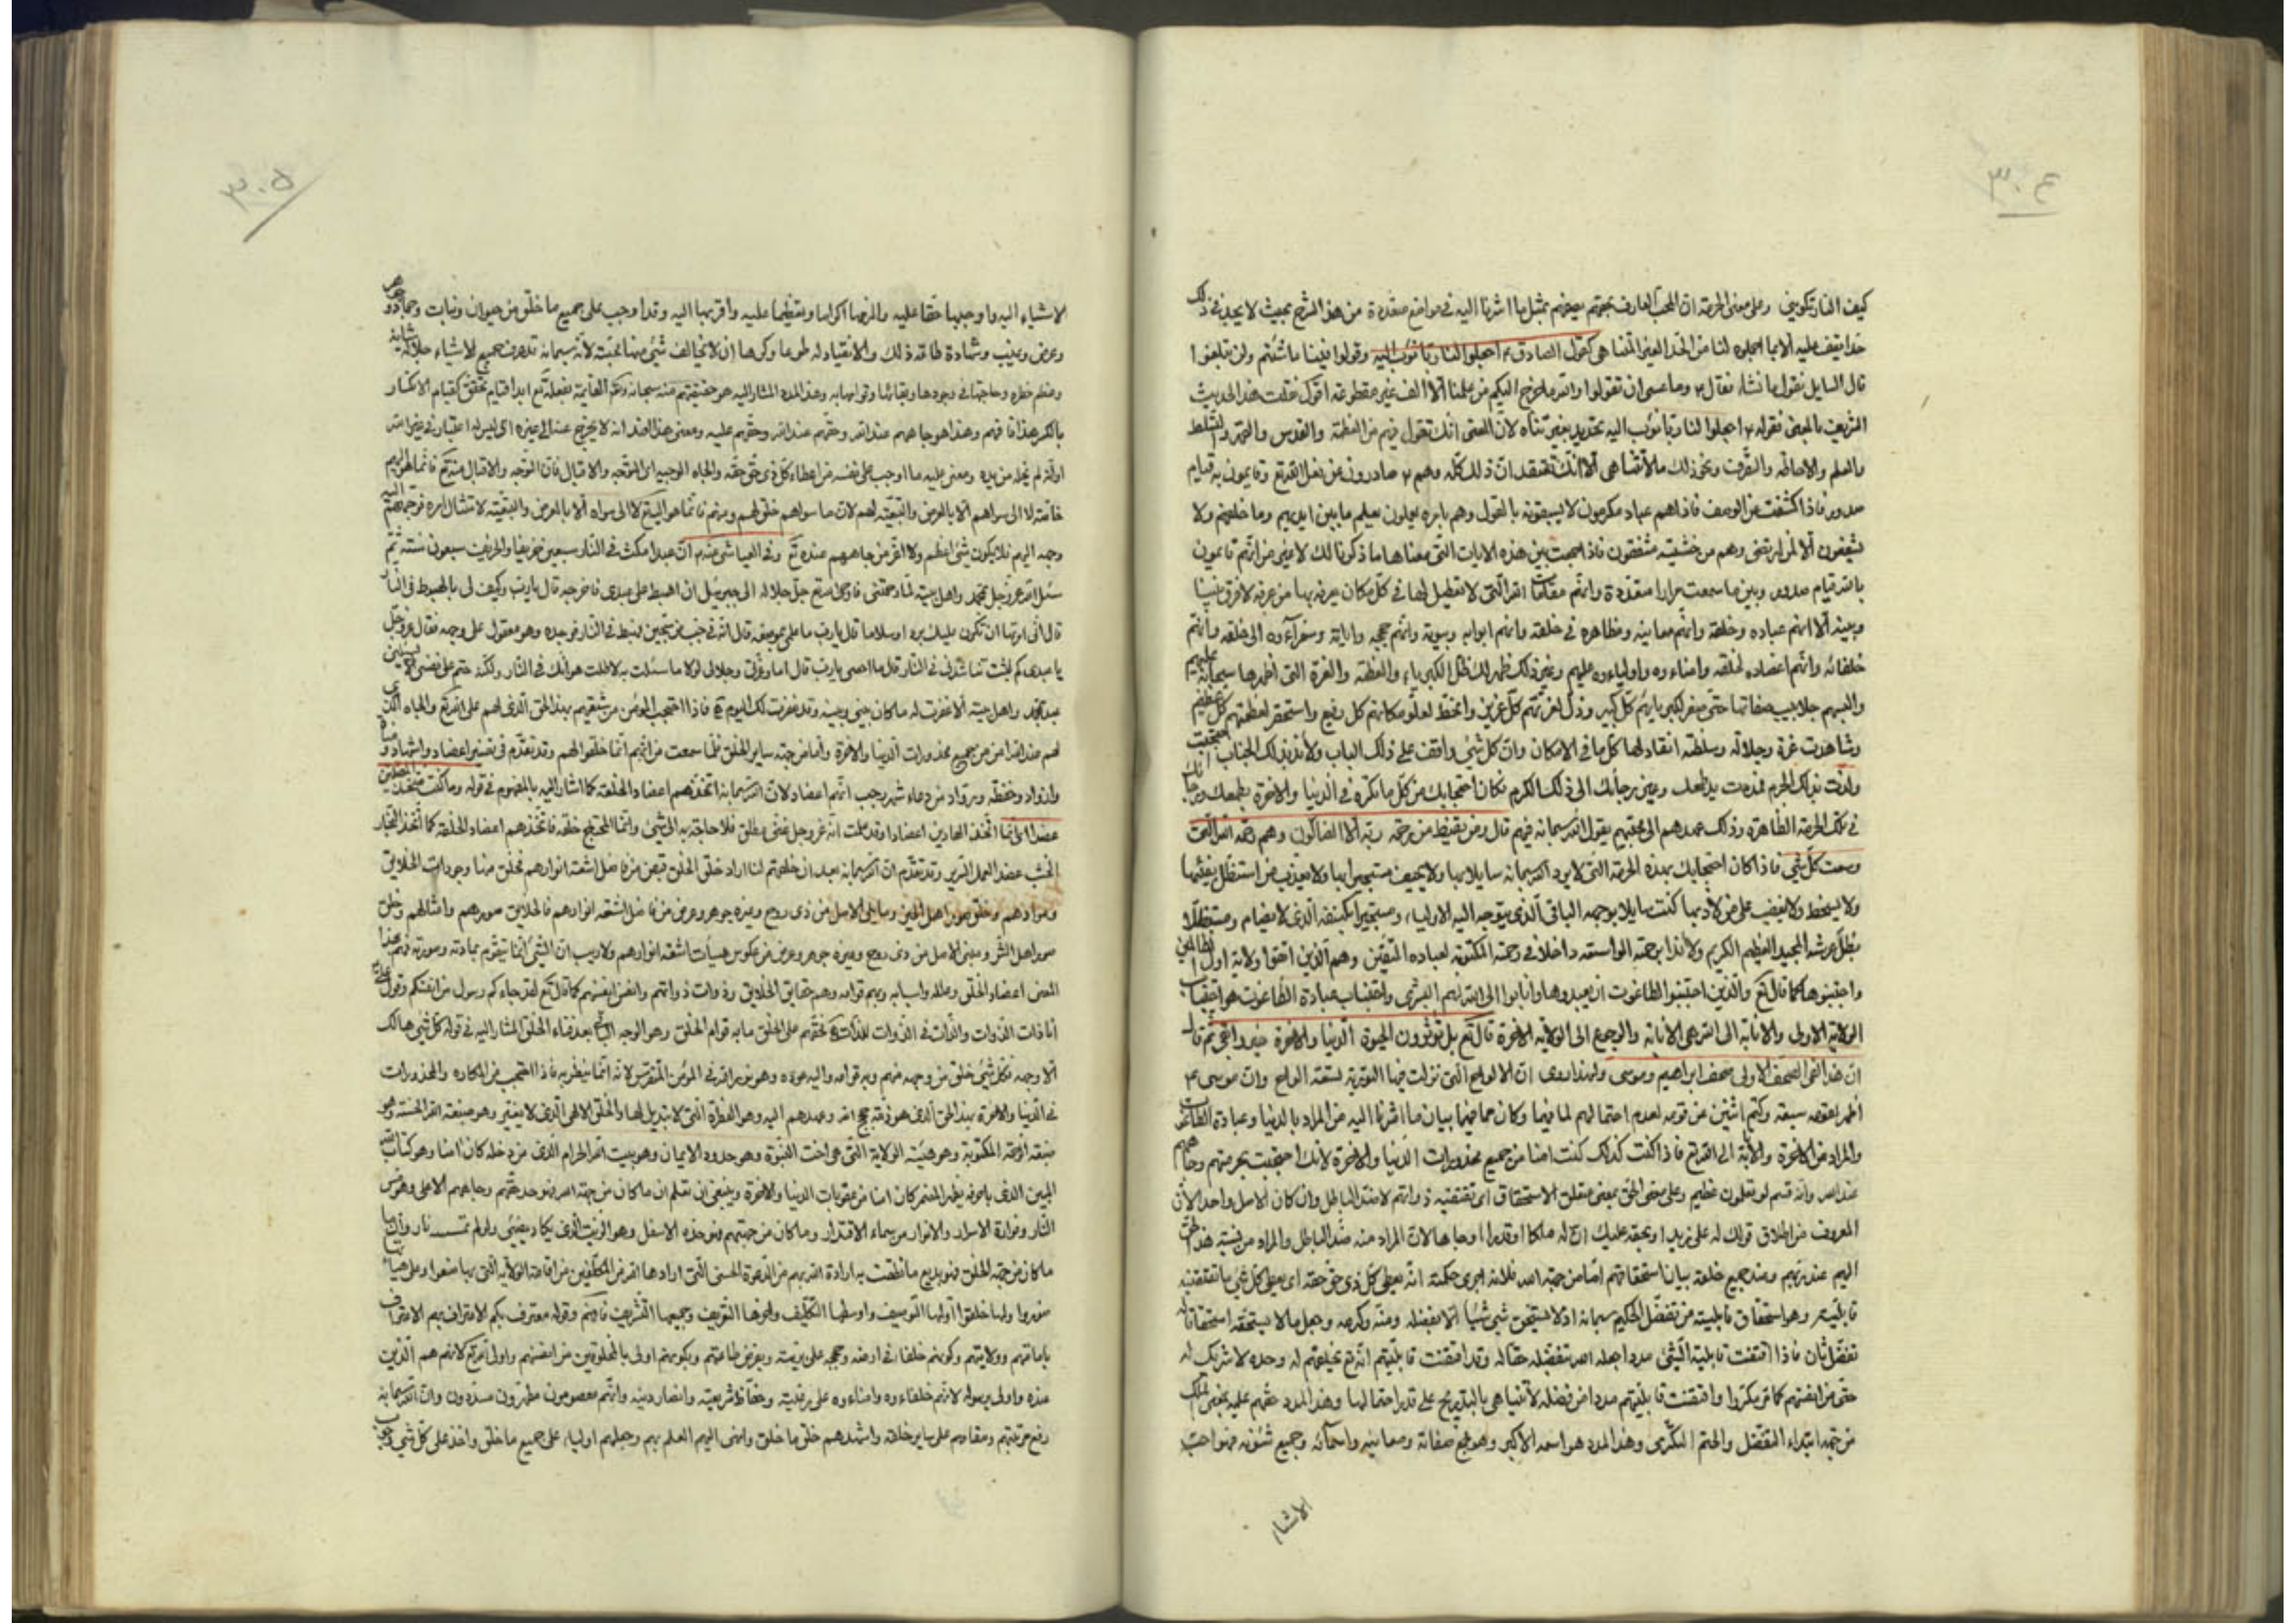 ٣٠٤
كيف النار تكويني وعلى معنى الحرمة ان المحب العارف بحقهم يصفهم بمثل ما اشرنا اليه في مواضع متعددة من هذا الشرح بحيث لا يجد في ذلك
حدا يقف عليه الا ما اجملوه لنا من الحد الغير المتناهي كقول الصادق ع اجعلوا لنا ربا نؤب اليه وقولوا فينا ما شئتم ولن تبلغوا
قال السايل نقول ما نشاء فقال ع وما عسى ان تقولوا والله ما خرج اليكم من علمنا الا الف غير معطوفة اقول نقلت هذا الحديث
الشريف بالمعنى فقوله ع اجعلوا لنا ربا نؤب اليه تحديد بغير تناه لان المعنى انك تقول فيهم من العظمة والقدس والقهر والتسلط
والعلم والاحاطة والتصرف ونحو ذلك ما لا يتناهى الا انك تعتقد ان ذلك كله وهم ع صادرون عن فعل الله تع وقايمون به قيام
صدور فاذا كشفت عن الوصف فاذا هم عباد مكرمون لا يسبقونه بالقول وهم بامره يعملون يعلم ما بين ايديهم وما خلفهم ولا
يشفعون الا لمن ارتضى وهم من خشيته مشفقون فاذا جمعت بين هذه الايات التي معناها ما ذكرنا لك لا غير من انهم قايمون
بالله قيام صدور وبين ما سمعت مرارا متعددة وانهم مقامات الله التي لا تعطيل لها في كل مكان يعرفه بها من عرفه لا فرق بينها
وبينه الا انهم عباده وخلقه وانهم معانيه ومظاهره في خلقه وانهم ابوابه وبيوته وانهم حججه واياته وسفراؤه الى خلقه وانهم
خلفائه وانهم اعضاده لخلقه وامناءه واولياءه عليهم وغير ذلك ظهر لك ظل الكبرياء والعظمة والعزة التي اظهرها سبحانه عليهم
والبسهم جلابيب صفاتها حتى صغر لكبريائهم كل كبير وذل لعزتهم كل عزيز وانحط لعلو مكانهم كل رفيع واستحقر لعظمتهم كل عظيم
وشاهدت عزة وجلالة وسلطة انقاد لها كل ما في الامكان وان كل شيء واقف على ذلك الباب ولائذ بذلك الجناب احتجبت
ولذت بذلك الحرم فمددت يد طمعك وعين رجائك الى ذلك الكريم فكان احتجابك من كل ما تكره في الدنيا والاخرة بطمعك ورجاءك
في تلك الحرمة الطاهرة وذلك عهدهم الى محبيهم يقول الله سبحانه فيهم قال ومن يقنط من رحمة ربه الا الضالون وهم رحمة الله التي
وسعت كل شيء فاذا كان احتجابك بهذه الحرمة التي لا يرد الله سبحانه سايلا بها ولا يخيف مستجيرا بها ولا يعذب من استظل بفيئها
ولا يسخط ولا يغضب على من لاذ بها كنت سايلا بوجهه الباقي الذي يتوجه اليه الاولياء ومستجيرا بكنفه الذي لا يضام ومستظلا
بظل عرشه المجيد العظيم الكريم ولائذا برحمته الواسعة داخلا في رحمته المكتوبة لعباده المتقين وهم الذين اتقوا ولاية اول الظالمين
واجتنبوها كما قال تع والذين اجتنبوا الطاغوت ان يعبدوها وانابوا الى الله لهم البشرى واجتناب عبادة الطاغوت هو اجتناب
الولاية الاولى والانابة الى الله هي الانابة والرجوع الى الولاية الاخرة قال تع بل تؤثرون الحيوة الدنيا والاخرة خير وابقى ثم قال
ان هذا لفي الصحف الاولى صحف ابراهيم وموسى ولهذا روى ان الالواح التي نزلت فيها التورية تسعة الواح وان موسى ع
اظهر لقومه سبعة وكتم اثنين عن قومه لعدم احتمالهم لما فيهما وكان مما فيهما بيان ما اشرنا اليه من المراد بالدنيا وعبادة الطاغوت
والمراد من الاخرة والانابة الى الله تع فاذا كنت كذلك كنت امنا من جميع محذورات الدنيا والاخرة لانك احتجبت بحرمتهم وجاههم
عند الله وانه قسم لو تعلمون عظيم وعلى معنى الحق بمعنى متعلق الاستحقاق اي تقتضيه ذواتهم لا ضد الباطل وان كان الاصل واحدا لان
المعروف من اطلاق قولك له على زيد او بحقه عليك ان له ملكا او قدرا وجاها لان المراد منه ضد الباطل والمراد من نسبة هذا الحق
اليهم عند ربهم وعند جميع خلقه بيان استحقاقهم اما من جهة الله فلانه اجرى حكمته انه يعطي كل ذي حق حقه اي يعطي كل شيء ما تقتضيه
قابليته وهو استحقاق قابليته من تفضل الحكيم سبحانه اذ لا يستحق شيء شيئا الا بفضله ومنه وكرمه وجعل ما لا يستحقه استحقاقا له
تفضل ثان فاذا اقتضت قابلية الشيء مددا جعله الله بتفضله حقا له وقد اقتضت قابليتهم انه تع يخلقهم له وحده لا شريك له
حتى من انفسهم كما مر مكررا واقتضت قابليتهم مددا من فضله لا يتناهى بالتدريج على قدر احتمالها وهذا المدد حقهم عليه بمعنى الملك
من جهة ابتداء التفضل والحتم التكرمي وهذا المدد هو اسمه الاكبر وهو جميع صفاته ومعانيه واسمائه وجميع شئونه فهو احب
الاشياء
٣٠٥
الاشياء اليه واوجبها حقا عليه والزمها اكراما وتعظيما عليه واقربها اليه وقد اوجب على جميع ما خلق من حيوان ونبات وجماد وجوهر
وعرض وغيب وشهادة طاعة ذلك والانقياد له طوعا وكرها ان لا يخالف شيء منها محبته لانه سبحانه تعرف لجميع الاشياء بجلالة شانه
وعظم خطره وحاجتها في وجودها وبقائها وقوامها به وهذا المدد المشار اليه هو حقيقتهم منه سبحانه وتع القايمة بفعله تع ابدا قيام تحقق كقيام الانكسار
بالكسر هذا فافهم وهذا هو جاههم عند الله وحقهم عند الله وحقهم عليه ومعنى هذا العند انه لا يخرج عنه الى غيره اي ليس له اعتبار في غير الله
اوانه لم يخل من يده ومعنى عليه ما اوجب على نفسه من اعطاء كل ذي حق حقه والجاه الوجيه اي التوجه والاقبال فان التوجه والاقبال منه تع فانما هو اليهم
خاصة لا الى سواهم الا بالعرض والتبعية لهم لان ما سواهم خلق لهم ومنهم فانما هو اليه تع لا الى سواه الا بالعرض والتبعية لامتثال امره فوجهتهم اليه
وجهه اليهم فلا يكون شيء اعظم ولا اقرب من جاههم عنده تع وفي العياشي عنه ع ان عبدا مكث في النار سبعين خريفا والخريف سبعون سنة ثم
سئل الله عز وجل بمحمد واهل بيته لما رحمتني فاوحى الله تع جل جلاله الى جبرئيل ان اهبط على عبدي فاخرجه قال يا رب وكيف لي بالهبوط في النار
قال اني امرتها ان تكون عليك بردا وسلاما قال يا رب فما علمي بموضعه قال انه في جب من سجين فهبط في النار فوجده وهو معقول على وجهه فقال عز وجل
يا عبدي كم لبثت تناشدني في النار قال ما احصي يا رب قال اما وعزتي وجلالي لولا ما سئلت به لاطلت هوانك في النار ولكنه حتم على نفسي لا يسئلني
عبد بمحمد واهل بيته الا غفرت له ما كان بيني وبينه وقد غفرت لك اليوم فاذا احتجب المؤمن من شيعتهم بهذا الحق الذي لهم على الله تع والجاه الذي
لهم عند الله امن من جميع محذورات الدنيا والاخرة واما من جهة ساير الخلق فلما سمعت من انهم انما خلقوا لهم وقد تقدم في تفسير اعضاد واشهاد ومناة
واذواد وحفظة ورواد من دعاء شهر رجب انهم اعضاد لان الله سبحانه اتخذهم اعضاد الخلقة كما اشار اليه بالمفهوم في قوله وما كنت متخذ المضلين
عضدا اي انما اتخذ الهادين اعضادا وقد علمت انه عز وجل غني مطلق فلا حاجة به الى شيء وانما المحتاج خلقه فاتخذهم اعضاد الخلقة كما اتخذ النجار
الخشب عضد العمل السرير وقد تقدم ان الله سبحانه بعد ان خلقهم لما اراد خلق الخلق قبض من فاضل اشعة انوارهم فخلق منها وجودات الخلايق
وموادهم وخلق صور اهل الخير وما يلي الاصل من ذي روح وغيره جوهر وعرض من فاضل اشعة انوارهم فالخلايق صورهم وامثالهم وخلق
صور اهل الشر وغير الاصل من ذي روح وغيره جوهر وعرض من عكوس هيات اشعة انوارهم ولا ريب ان الشيء انما يتقوم بمادته وصورته فهم بهذا
المعنى اعضاد الخلق وعلله واسبابه وبهم قوامه وهم حقايق الخلايق وذوات ذواتهم وانفس انفسهم كما قال تع لقد جاءكم رسول من انفسكم وقول علي ع
انا ذات الذوات والذات في الذوات للذات فحقهم على الخلق ما به قوام الخلق وهو الوجه الباقي بعد فناء الخلق المشار اليه في قوله كل شيء هالك
الا وجهه فكل شيء خلق من وجهه منهم وبه قوامه واليه عوده وهو نور الله في المؤمن المتفرس لانه انما ينظر به فاذا احتجب من المكاره والمحذورات
في الدنيا والاخرة بهذا الحق الذي هو ذمة حجج الله وعهدهم اليه وهو الفطرة التي لا تبديل لها والخلق الالهي الذي لا يتغير وهو صبغة الله الحسنة وهو
صبغة الرحمة المكتوبة وهو هيئة الولاية التي هي اخت النبوة وهو حدود الايمان وهو بيت الله الحرام الذي من دخله كان امنا وهو كتاب الله
المبين الذي باحرفه يظهر المضمر كان امنا من عقوبات الدنيا والاخرة وينبغي ان تعلم ان ما كان من جهة الله فهو حدهم وجاههم الاعلى وهو مس
النار وفوارة الاسرار والانوار من سماء الاقتدار وما كان من جهتهم فهو حده الاسفل وهو الزيت الذي يكاد يضيء ولو لم تمسسه نار وان
ما كان من جهة الخلق فهو بديع ما نطقت به ارادة الله بهم من الدعوة الحسنى التي ارادها الله من المكلفين من اقامة الولاية التي بها صنعوا وعلى هيا
صوروا ولها خلقوا اولها التوصيف واوسطها التكليف واخرها التعريف وجميعها التشريف فافهم وقوله معترف بكم الاعتراف بهم الاعتراف
بامامتهم وولايتهم وكونهم خلفائه في ارضه وحججه على بريته وبفرض طاعتهم وبكونهم اولى بالمخلوقين من انفسهم واولى الله تع لانهم هم الذين
عنده واولى برسوله لانهم خلفاءه وامناءه على رعيته وحفاظ شريعته وانصار دينه وانهم معصومون مطهرون مسددون وان الله سبحانه
رفع مرتبتهم ومقامهم على ساير خلقه واشهدهم خلق ما خلق وانهى اليهم العلم بهم وجعلهم اولياء على جميع ما خلق واخذ على كل شيء